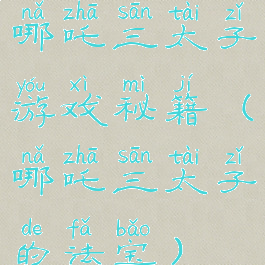 nǎ zhā sān tài zǐ
哪吒三太子
yóu xì mì jí
游戏秘籍(
nǎ zhā sān tài zǐ
哪吒三太子
de fǎ bǎo
的法宝)